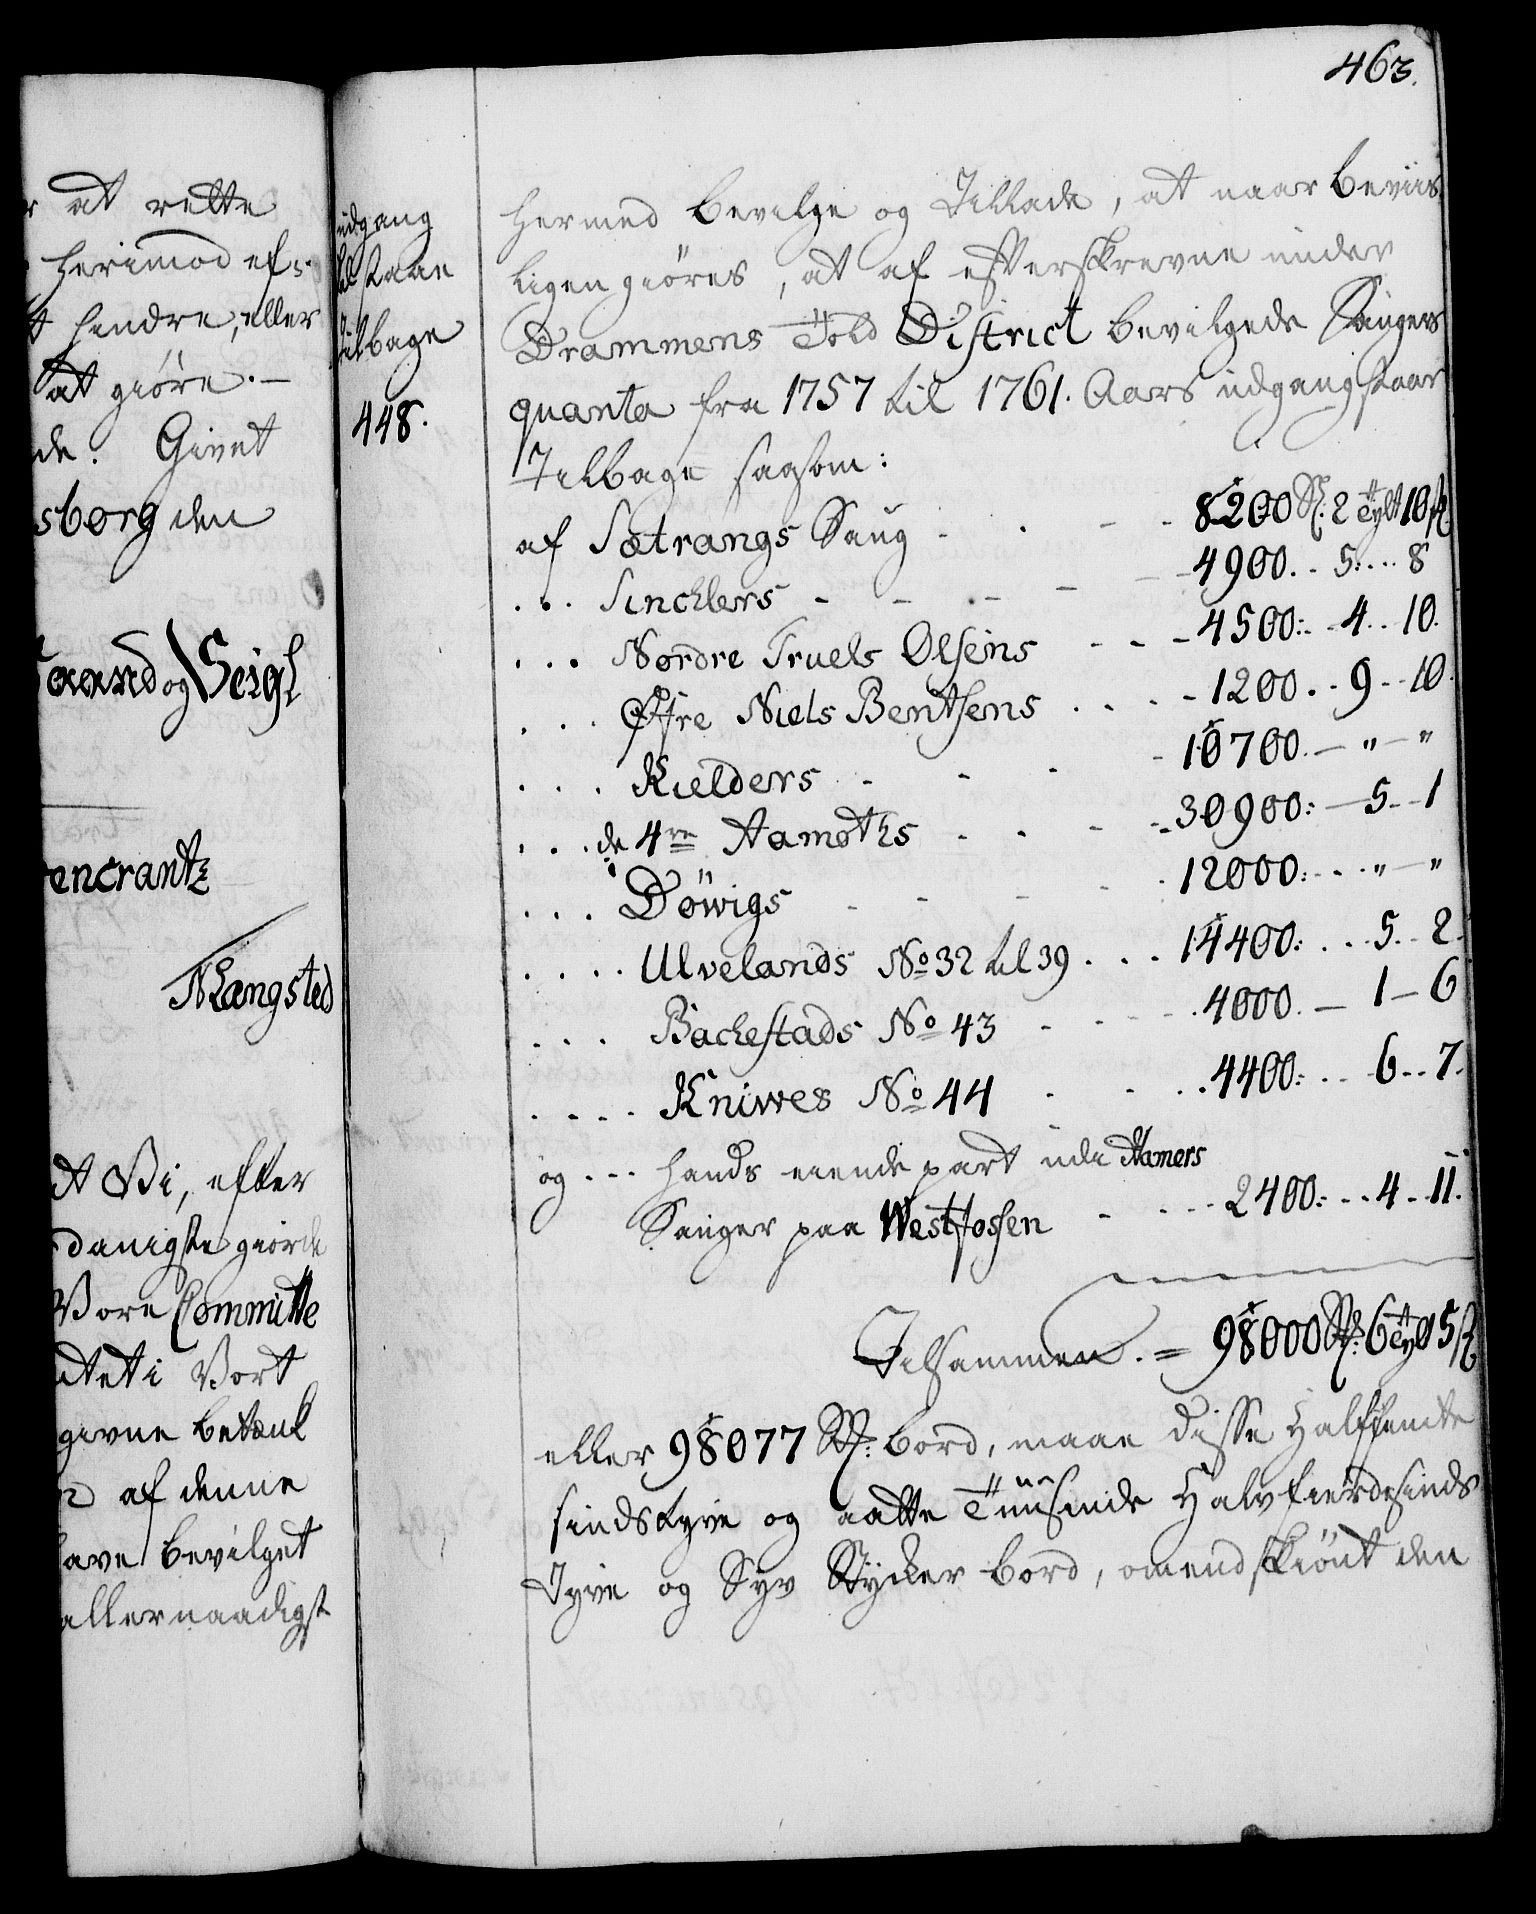 463.
at rette
herimod ef-
hindre, eller
at giøre. —
de. Givet
sborg den
Haand og Seigl
encrantz
N Langsted
at Vi, efter
danigste giorde
Vore Committe
utet i Vort
givne betænk
af denne
have bevilget
allernaadigst
udgang
staae
Tilbage
448.
hermed bevilge og Tillade, at naar beviis
ligen giøres, at af efterskrevne under
Drammens Told District bevilgede Saugers
quanta fra 1757 til 1761. Aars udgang staar
Tilbage saasom:
af Sætrangs Saug - . - - 8200 St. 2 Tylt 10 st
... Sincklers - - - - 4900.. 5.... 8
... Nordre Truels Olsens - - - 4500:. 4.. 10.
... Øfre Niels Benthsens . . . - 1200.. 9.. 10.
.... Kielders - - - - 10700. — " — "
... de 4re Aamoths . . - - 30900: — 5.. 1
.... Döwigs - - - - . 12000:... " — "
.... Ulvelands No 32 til 39 . . . 14400: ... 5.. 2.
... Bachestads No 43 - - - - . 4000. — 1 — 6
.... Kniwes No 44 - - - .. 4400:... 6.. 7.
og ... hands eiende part udi Hamers
Sauger paa Westfossen - - ... 2400:... 4.. 11.
Tilsammen. = 98000 St. 6 Tylt 5 st
eller 98077 St. bord, maae disse Halffemte
sindstyve og aatte Tuusinde Halvfierdesinds
Tyve og Syv Stycker bord, omendskiönt den